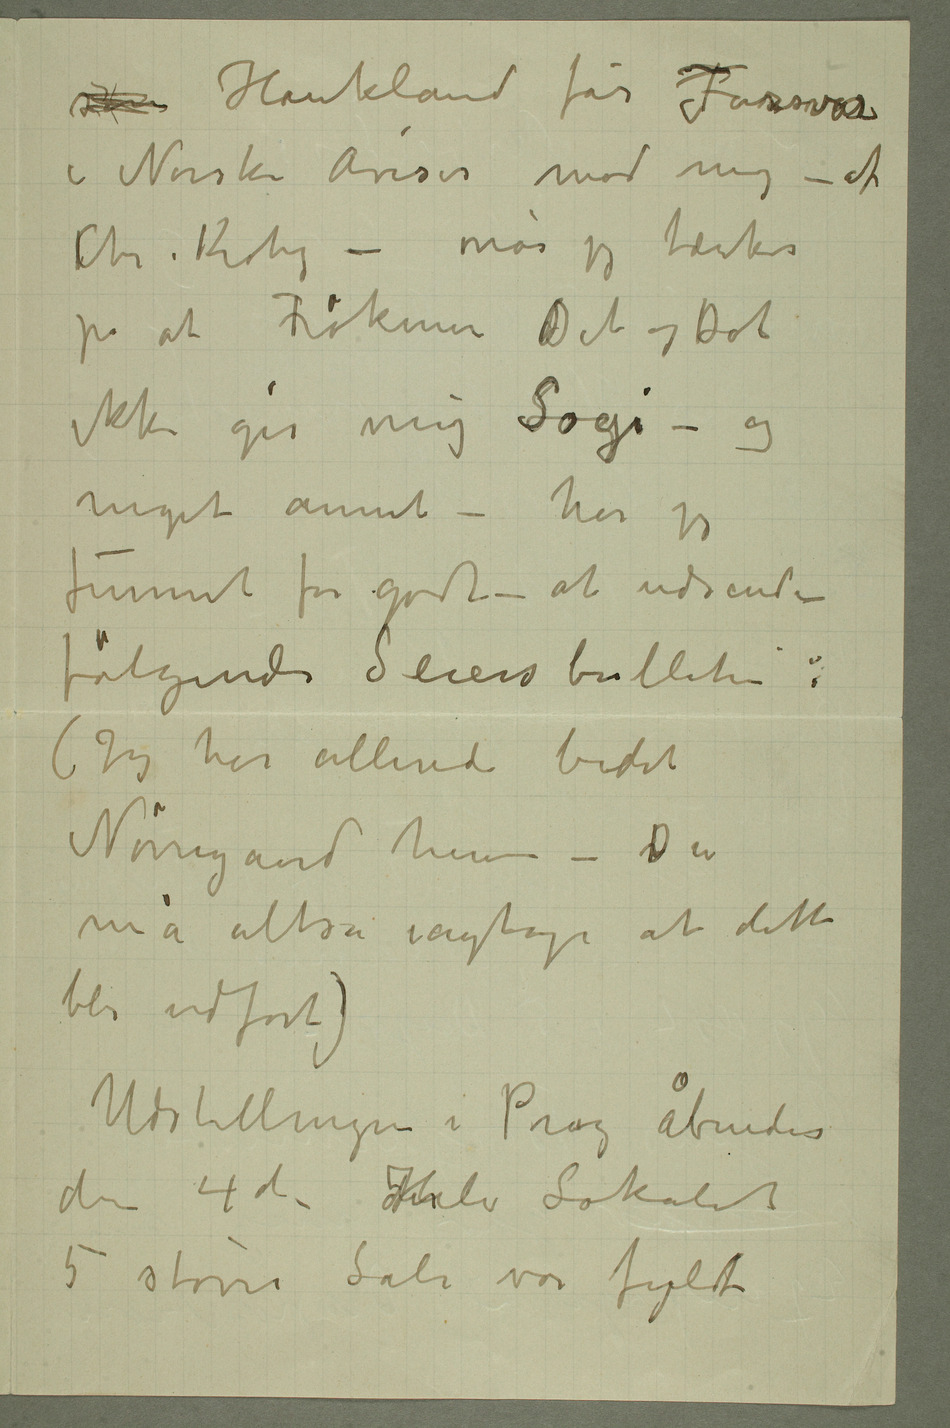 Haukland får Forsvar
i Norske Aviser mod mig – af
Chr. Krohg – når jeg tænker
på at Frökener Det og Dat
ikke gir mig Sogi – og
meget annet – har jeg
funnet for godt – at udsende
fölgende Seiersbulletin :
(Jeg har allerede bedet
Nörregaard herom – Du
må altså iagtage at dette
blir udfört)
Udstillingen i Prag åbnedes
den 4d. Hele Lokalet
5 störe Sale var fyldt